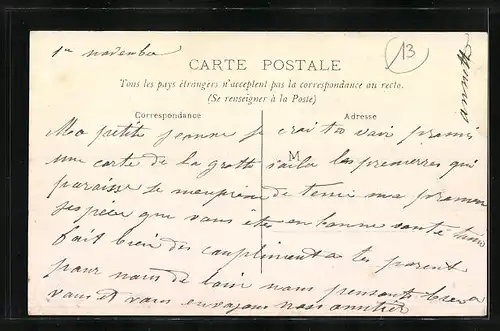 1er novembre
13
CARTE POSTALE
Tous les pays étrangers n'acceptent pas la correspondance au recto.
(Se renseigner à la Poste)
Correspondance
Adresse
M
Ma petite Jeanne je croi to voir promi
une carte de la grotte voila les premierres qui
paraisse je de tenir ma
j'espere que vous êtes en bonne santé
fait bien des compliments a tes parent
pour nous de loin nous pensons bien a
vous et vous envoyons nos amitier